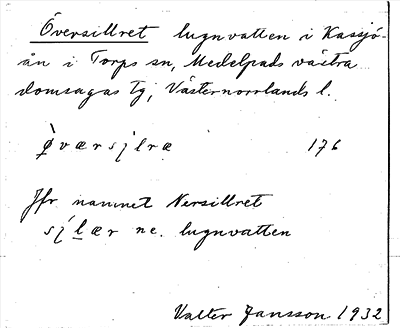 Översillret lugnvatten i Kassjö-
ån i Torps sn, Medelpads västra
domsagas tg, Västernorrlands l.
ø̀værsjlræ 176
Jfr namnet Nersillret
sjlær ne. lugnvatten
Valter Jansson 1932